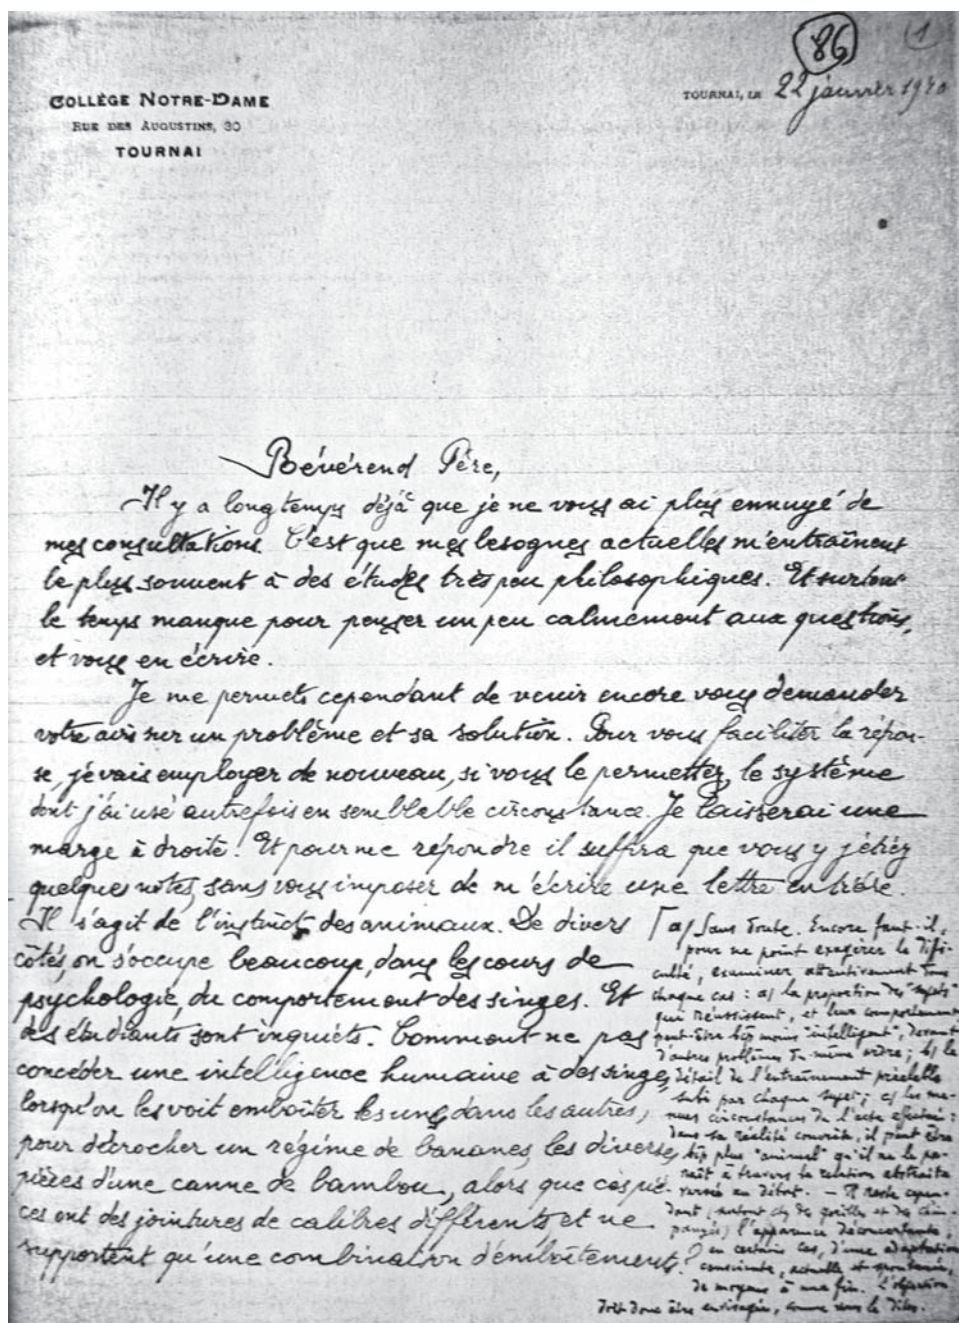 86
1
COLLÈGE NOTRE-DAME
RUE DES AUGUSTINS, 30
TOURNAI
TOURNAI, LE 22 janvier 1940
Révérend Père,
Il y a longtemps déjà que je ne vous ai plus ennuyé de
mes consultations. C'est que mes besognes actuelles m'entraînent
le plus souvent à des études très peu philosophiques. Et surtout
le temps manque pour penser un peu calmement aux questions,
et vous en écrire.
Je me permets cependant de venir encore vous demander
votre avis sur un problème et sa solution. Pour vous faciliter la répon-
se, je vais employer de nouveau, si vous le permettez, le système
dont j'ai usé autrefois en semblable circonstance. Je laisserai une
marge à droite. Et pour me répondre il suffira que vous y jetiez
quelques notes, sans vous imposer de m'écrire une lettre entière.
Il s'agit de l'instinct des animaux. De divers
côtés, on s'occupe beaucoup, dans les cours de
psychologie, du comportement des singes. Et
des étudiants sont inquiets. Comment ne pas
concéder une intelligence humaine à des singes,
lorsqu'on les voit emboîter les uns dans les autres,
pour décrocher un régime de bananes, les diverses
pièces d'une canne de bambou, alors que ces piè-
ces ont des jointures de calibres différents et ne
supportent qu'une combinaison d'emboîtement?
a) Sans doute. Encore faut-il,
pour ne point exagérer la diffi-
culté, examiner attentivement dans
chaque cas : a) la proportion des "sujets"
qui réussissent, et leur comportement
peut-être bcp moins "intelligent", devant
d'autres problèmes du même ordre; b) le
détail de l'entraînement préalable
subi par chaque sujet; c) les me-
nues circonstances de l'acte effectué :
dans sa réalité concrète, il peut être
bcp plus "animal" qu'il ne le pa-
raît à travers la relation abstraite
versée au débat. — Il reste cepen-
dant (surtout chez des gorilles et des chim-
panzés) l'apparence déconcertante,
en certains cas, d'une adaptation
consciente, actuelle et spontanée,
de moyens à une fin. L'objection
doit donc être envisagée, comme vous le dites.